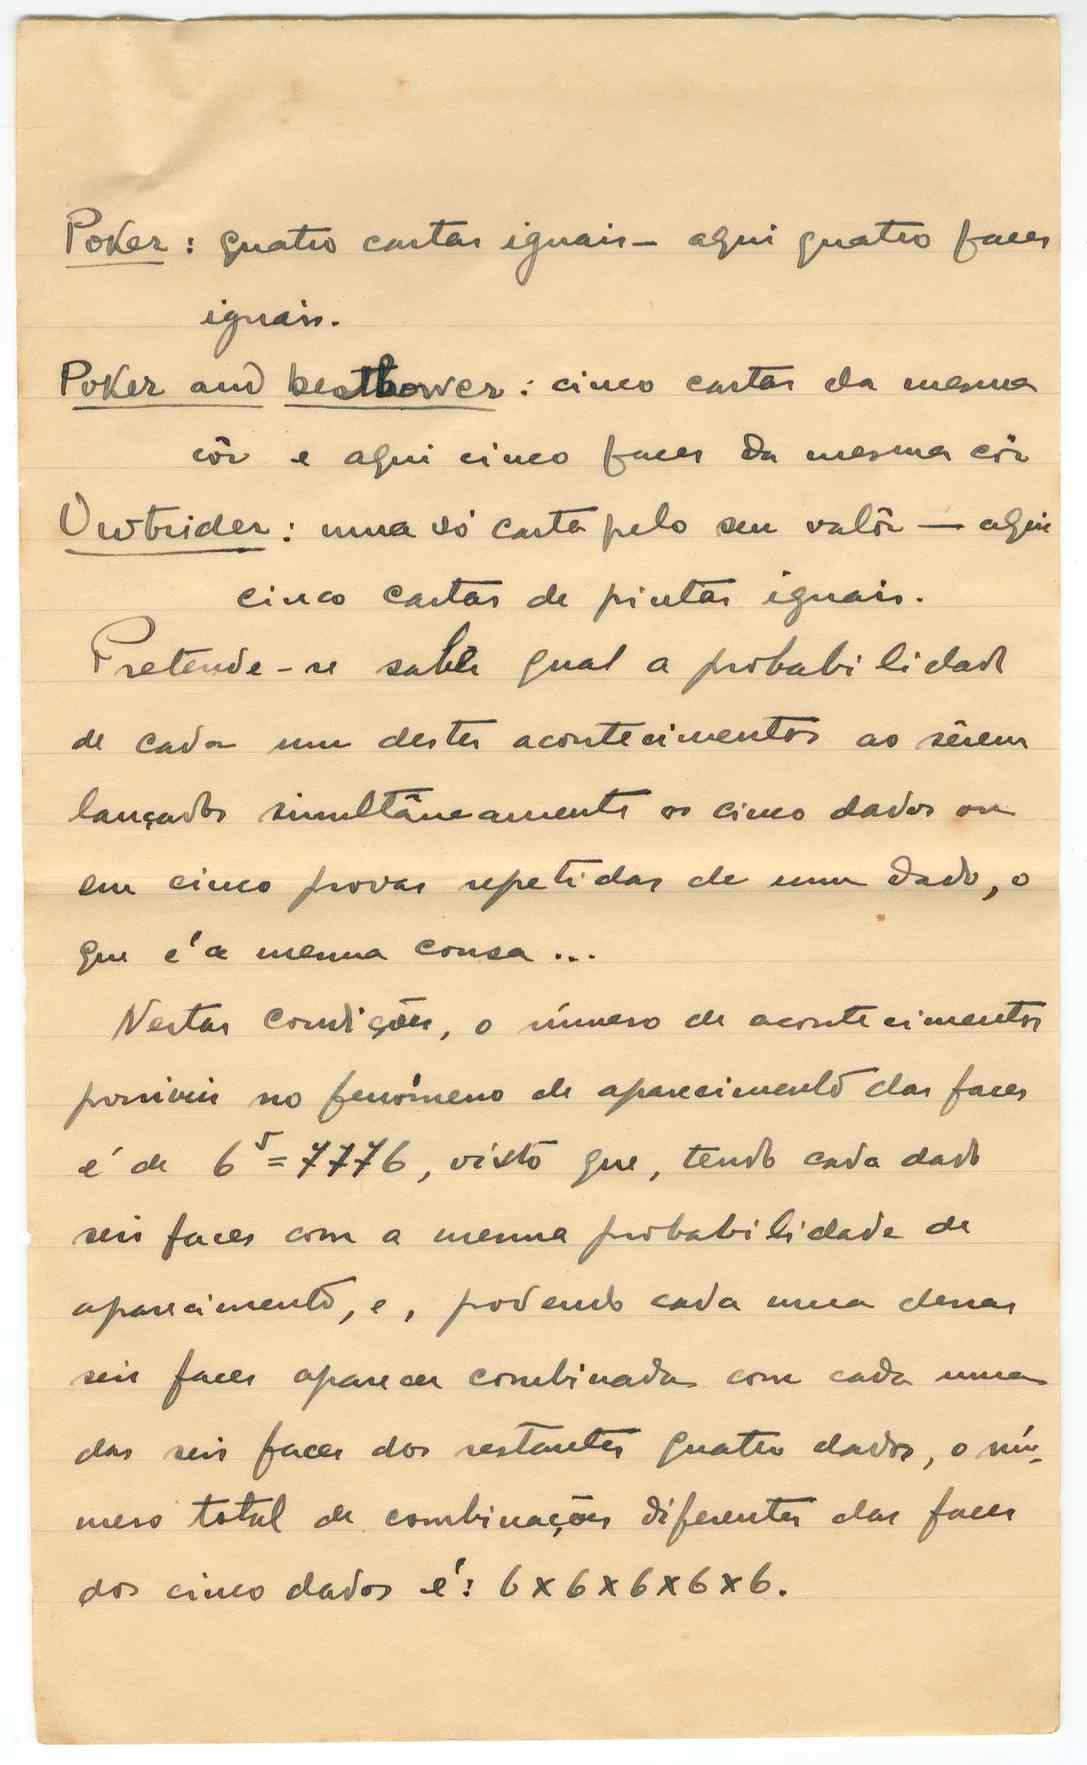 Poker: quatro cartas iguais — aqui quatro faces
iguais.
Poker and bestbower: cinco cartas da mesma
côr e aqui cinco faces da mesma côr
Owtrider: uma só carta pelo seu valôr — aqui
cinco cartas de pintas iguais.
Pretende-se saber qual a probabilidade
de cada um destes acontecimentos ao sêrem
lançados simultâneamente os cinco dados ou
em cinco provas repetidas de um dado, o
que é a mesma cousa ...
Nestas condições, o número de acontecimentos
possiveis no fenómeno de aparecimento das faces
é de 6⁵ = 7776, visto que, tendo cada dado
seis faces com a mesma probabilidade de
aparecimento, e, podendo cada uma dessas
seis faces aparecer combinada com cada uma
das seis faces dos restantes quatro dados, o nú-
mero total de combinações diferentes das faces
dos cinco dados é: 6 x 6 x 6 x 6 x 6.